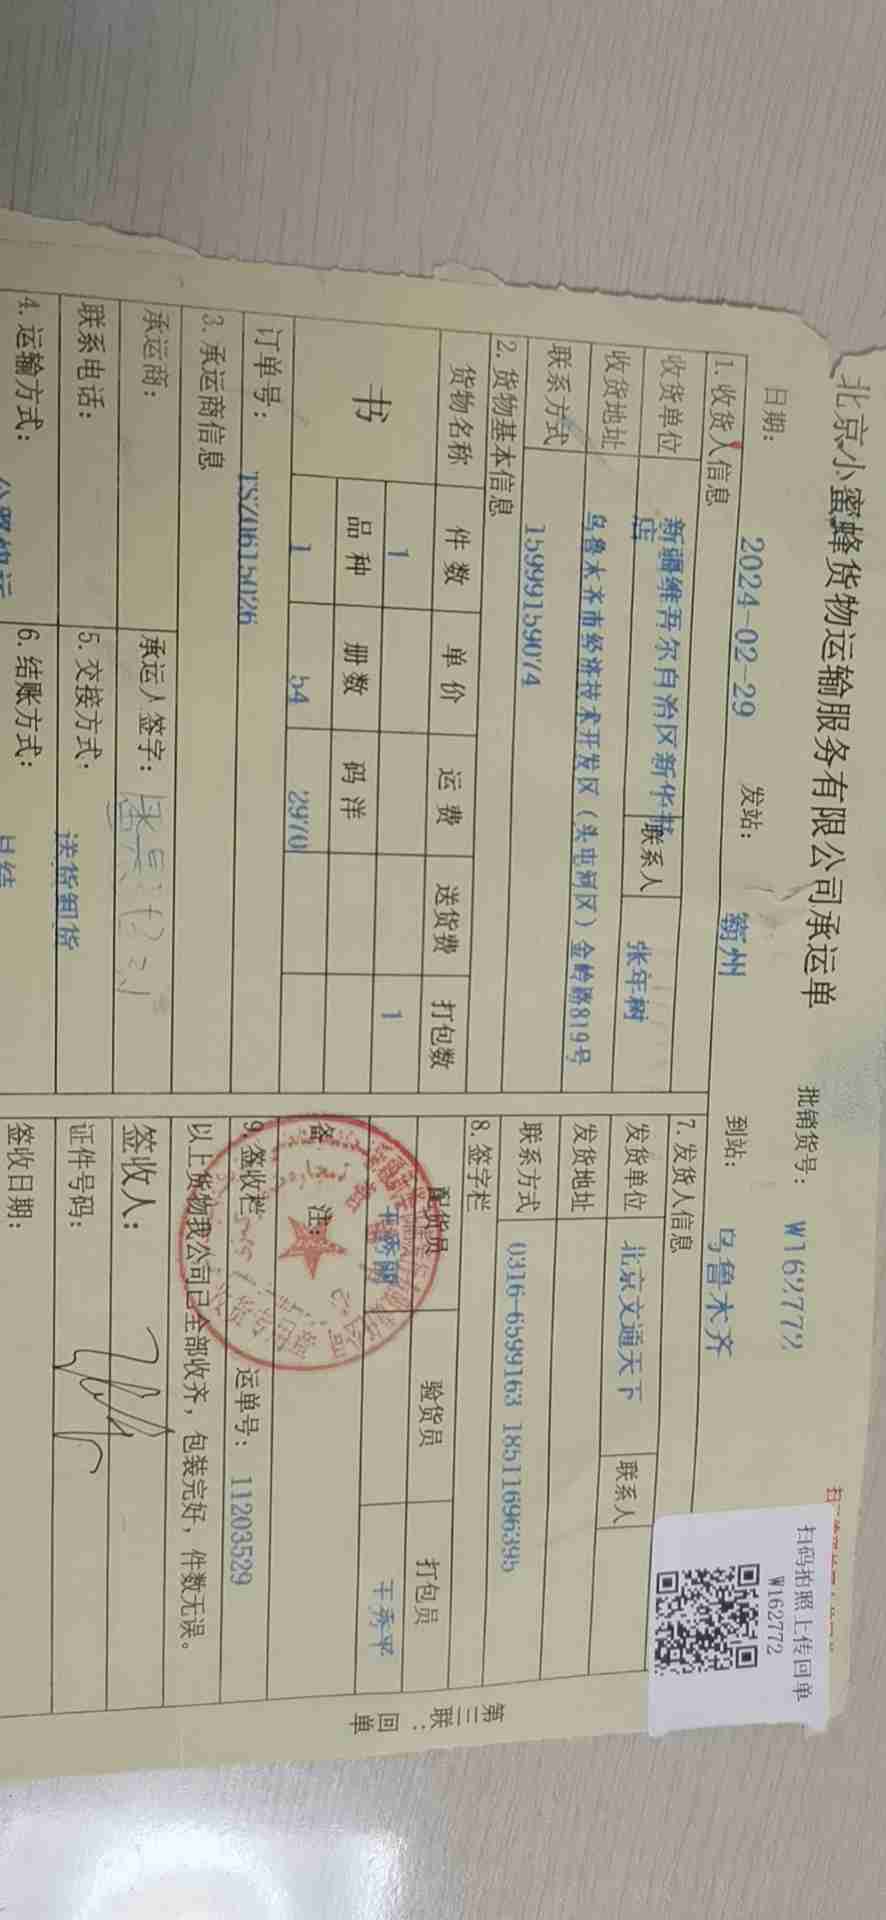 北京小蜜蜂货物运输服务有限公司承运单
批销货号： W162772
日期： 2024-02-29 发站： 霸州 到站： 乌鲁木齐
扫码拍照上传回单
W162772
1. 收货人信息
收货单位 新疆维吾尔自治区新华书店 联系人 张年树
收货地址 乌鲁木齐市经济技术开发区（头屯河区）金岭路819号
联系方式 15999159074
2. 货物基本信息
货物名称 件数 单价 运费 送货费 打包数
书 1 1
品种 册数 码洋
1 54 2970
订单号： TSZ0615026
3. 承运商信息
承运商： 承运人签字：
联系电话： 5. 交接方式： 送货卸货
4. 运输方式： 6. 结账方式： 月结
7. 发货人信息
发货单位 北京文通天下 联系人
发货地址
联系方式 0316-6599163 18511696395
8. 签字栏
配货员 验货员 打包员
王秀丽 王秀平
备注：
收货专用章
9. 签收栏 运单号： 11203529
以上货物我公司已全部收齐，包装完好，件数无误。
签收人：
证件号码：
签收日期：
第三联：回单